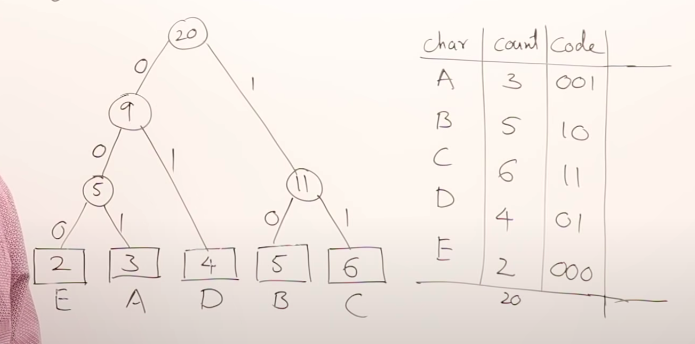 20
0
1
9
0
1
5
11
0
1
0
1
2
3
4
5
6
E
A
D
B
C
char count Code
A 3 001
B 5 10
C 6 11
D 4 01
E 2 000
20